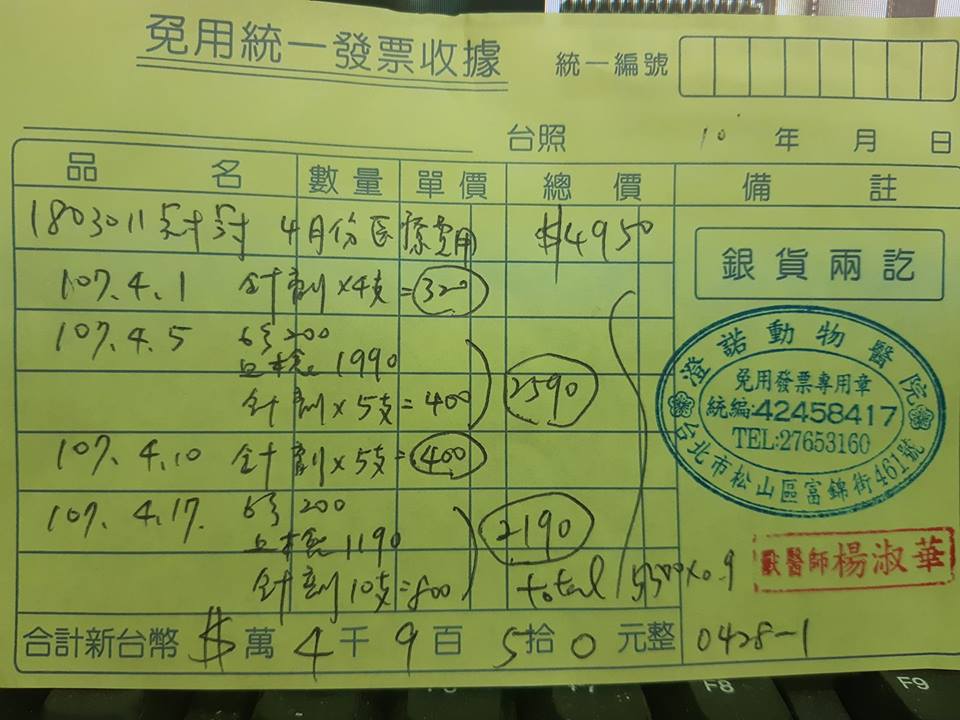 免用統一發票收據
統一編號
台照 年 月 日
品名 數量 單價 總價 備註
1803011 4月份医療費用 $4950
銀貨兩訖
107.4.1 針劑×4支=320
107.4.5 200
血檢 1990
針劑×5支=400 2590
107.4.10 針劑×5支=400
107.4.17. 200
血檢 1190 2190
針劑10支=800 total 5500×0.9
合計新台幣 $ 萬 4 千 9 百 5 拾 0 元整 0428-1
澄諾動物醫院
免用發票專用章
統編:42458417
TEL:27653160
台北市松山區富錦街461號
獸醫師楊淑華
F7 F8 F9